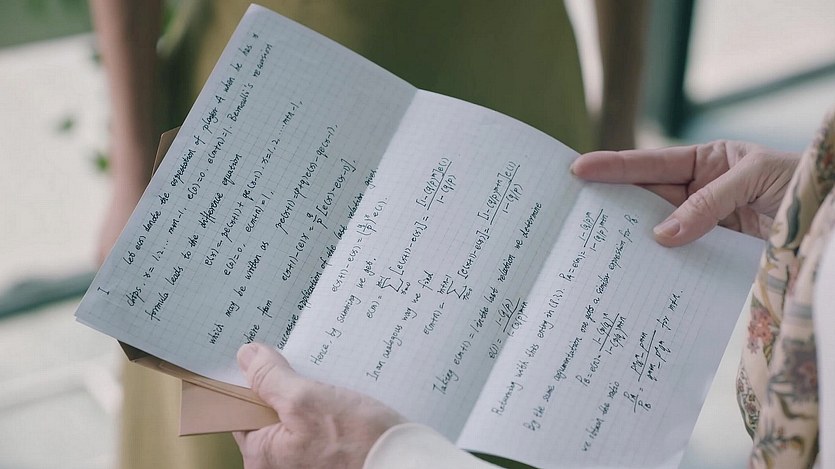 Let e(x) denote the expectation of player A when he has x
chips. x = 1,2. … m+n-1. e(0)=0. e(m+n)=1. Bernoulli's recurrent
formula leads to the difference equation
e(x) = pe(x+1) + qe(x-1), x=1,2…m+n-1.
e(0)=0. e(m+n)=1.
which may be written as pe(x+1)=(p+q)e(x)-qe(x-1).
where from
e(x+1)-e(x) = q/p [e(x)-e(x-1)].
successive application of the last relation
e(x+1)-e(x) = (q/p)^x e(1).
Hence, by summing we get.
e(m) = Σ [e(x+1)-e(x)] = [1-(q/p)^m]e(1) / 1-(q/p)
In an analogous way we find
e(m+n) = Σ [e(x+1)-e(x)] = [1-(q/p)^m+n]e(1) / 1-(q/p)
Taking e(m+n)=1 in the last relation we determine
e(1) = 1-(q/p) / 1-(q/p)^m+n
Returning with this entry in
PA = e(m) = 1-(q/p)^m / 1-(q/p)^m+n
By the same argumentation one gets a similar expression for PB
PB = e(n) =
we obtain the ratio
PA / PB